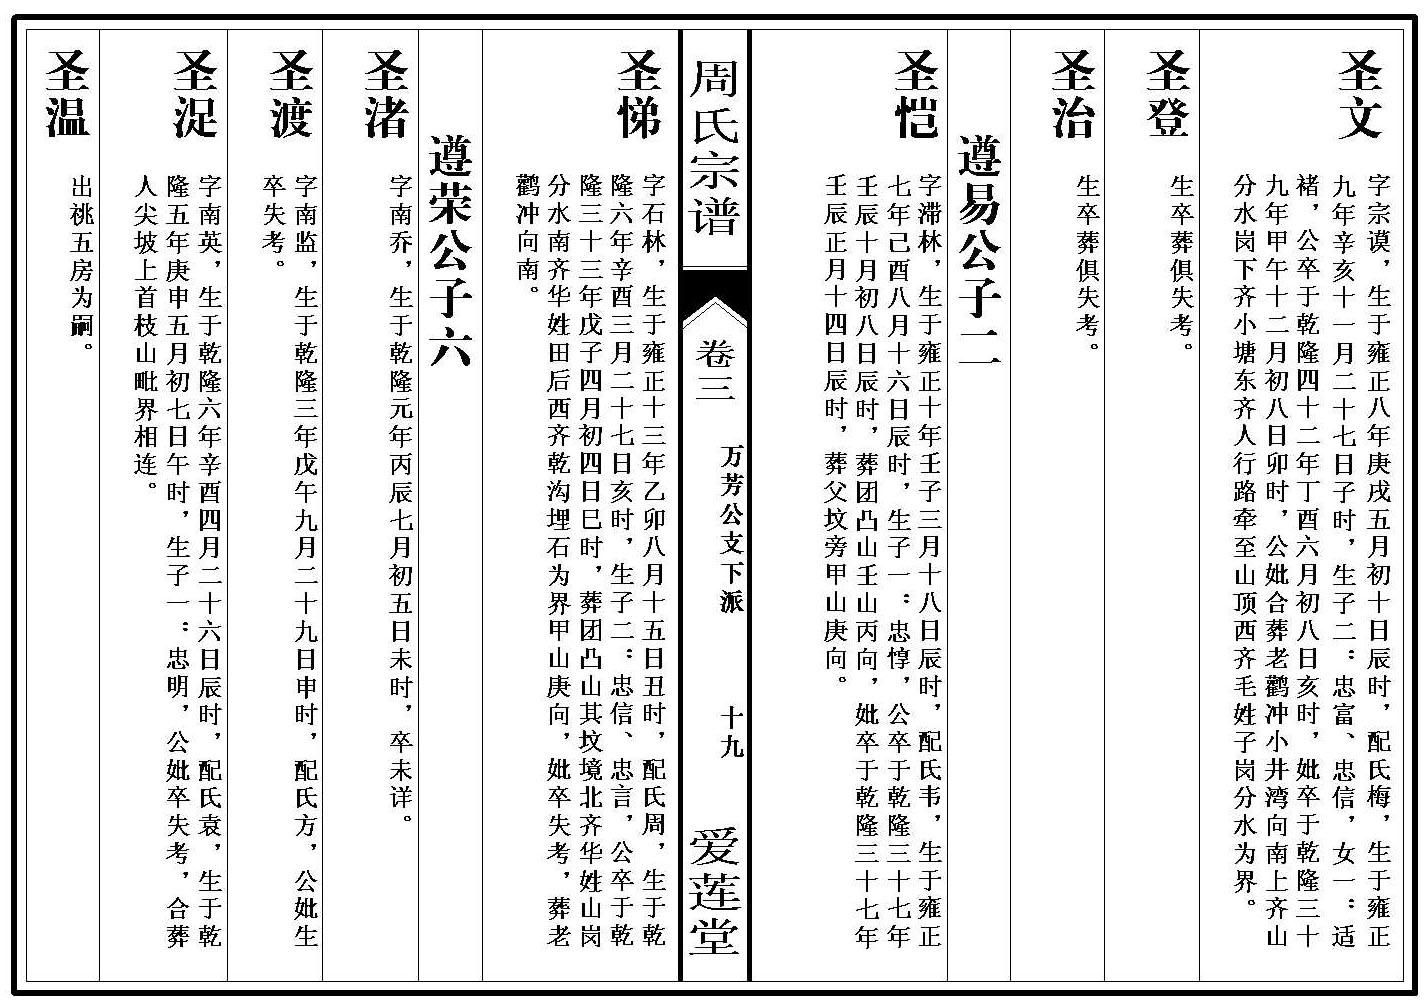 圣文
字宗谟，生于雍正八年庚戌五月初十日辰时，配氏梅，生于雍正
九年辛亥十一月二十七日子时，生子二：忠富、忠信，女一：适
褚，公卒于乾隆四十二年丁酉六月初八日亥时，妣卒于乾隆三十
九年甲午十二月初八日卯时，公妣合葬老鹳冲小井湾向南上齐山
分水岗下齐小塘东齐人行路牵至山顶西齐毛姓子岗分水为界。
圣登
生卒葬俱失考。
圣治
生卒葬俱失考。
遵易公子二
圣恺
字滞林，生于雍正十年壬子三月十八日辰时，配氏韦，生于雍正
七年己酉八月十六日辰时，生子一：忠惇，公卒于乾隆三十七年
壬辰十月初八日辰时，葬团凸山壬山丙向，妣卒于乾隆三十七年
壬辰正月十四日辰时，葬父坟旁甲山庚向。
周氏宗谱
卷三
万芳公支下派
十九
爱莲堂
圣悌
字石林，生于雍正十三年乙卯八月十五日丑时，配氏周，生于乾
隆六年辛酉三月二十七日亥时，生子二：忠信、忠言，公卒于乾
隆三十三年戊子四月初四日巳时，葬团凸山其坟境北齐华姓山岗
分水南齐华姓田后西齐乾沟埋石为界甲山庚向，妣卒失考，葬老
鹳冲向南。
遵荣公子六
圣渚
字南乔，生于乾隆元年丙辰七月初五日未时，卒未详。
圣渡
字南监，生于乾隆三年戊午九月二十九日申时，配氏方，公妣生
卒失考。
圣浞
字南英，生于乾隆六年辛酉四月二十六日辰时，配氏袁，生于乾
隆五年庚申五月初七日午时，生子一：忠明，公妣卒失考，合葬
人尖坡上首枝山毗界相连。
圣温
出祧五房为嗣。